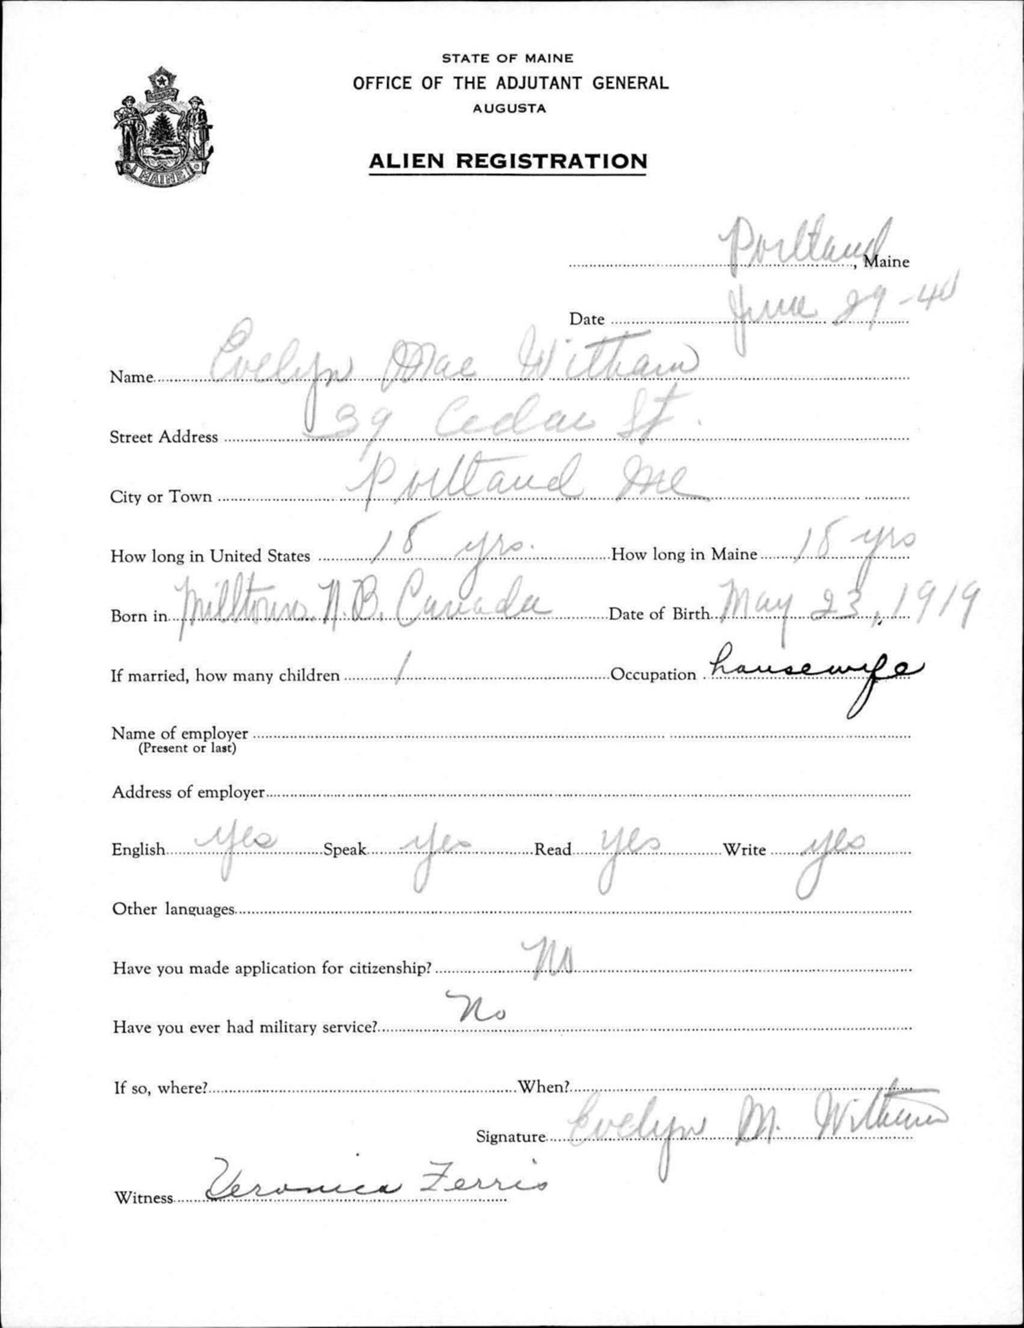 STATE OF MAINE
OFFICE OF THE ADJUTANT GENERAL
AUGUSTA
MAINE
ALIEN REGISTRATION
Portland, Maine
Date June 29-40
Name Evelyn Mae Witham
Street Address 39 Cedar St.
City or Town Portland Me
How long in United States 18 yrs. How long in Maine 18 yrs
Born in Milltown N.B. Canada Date of Birth May 23, 1919
If married, how many children 1 Occupation housewife
Name of employer
(Present or last)
Address of employer
English yes Speak yes Read yes Write yes
Other languages
Have you made application for citizenship? No
Have you ever had military service? No
If so, where? When?
Signature Evelyn M. Witham
Witness Veronica Ferris